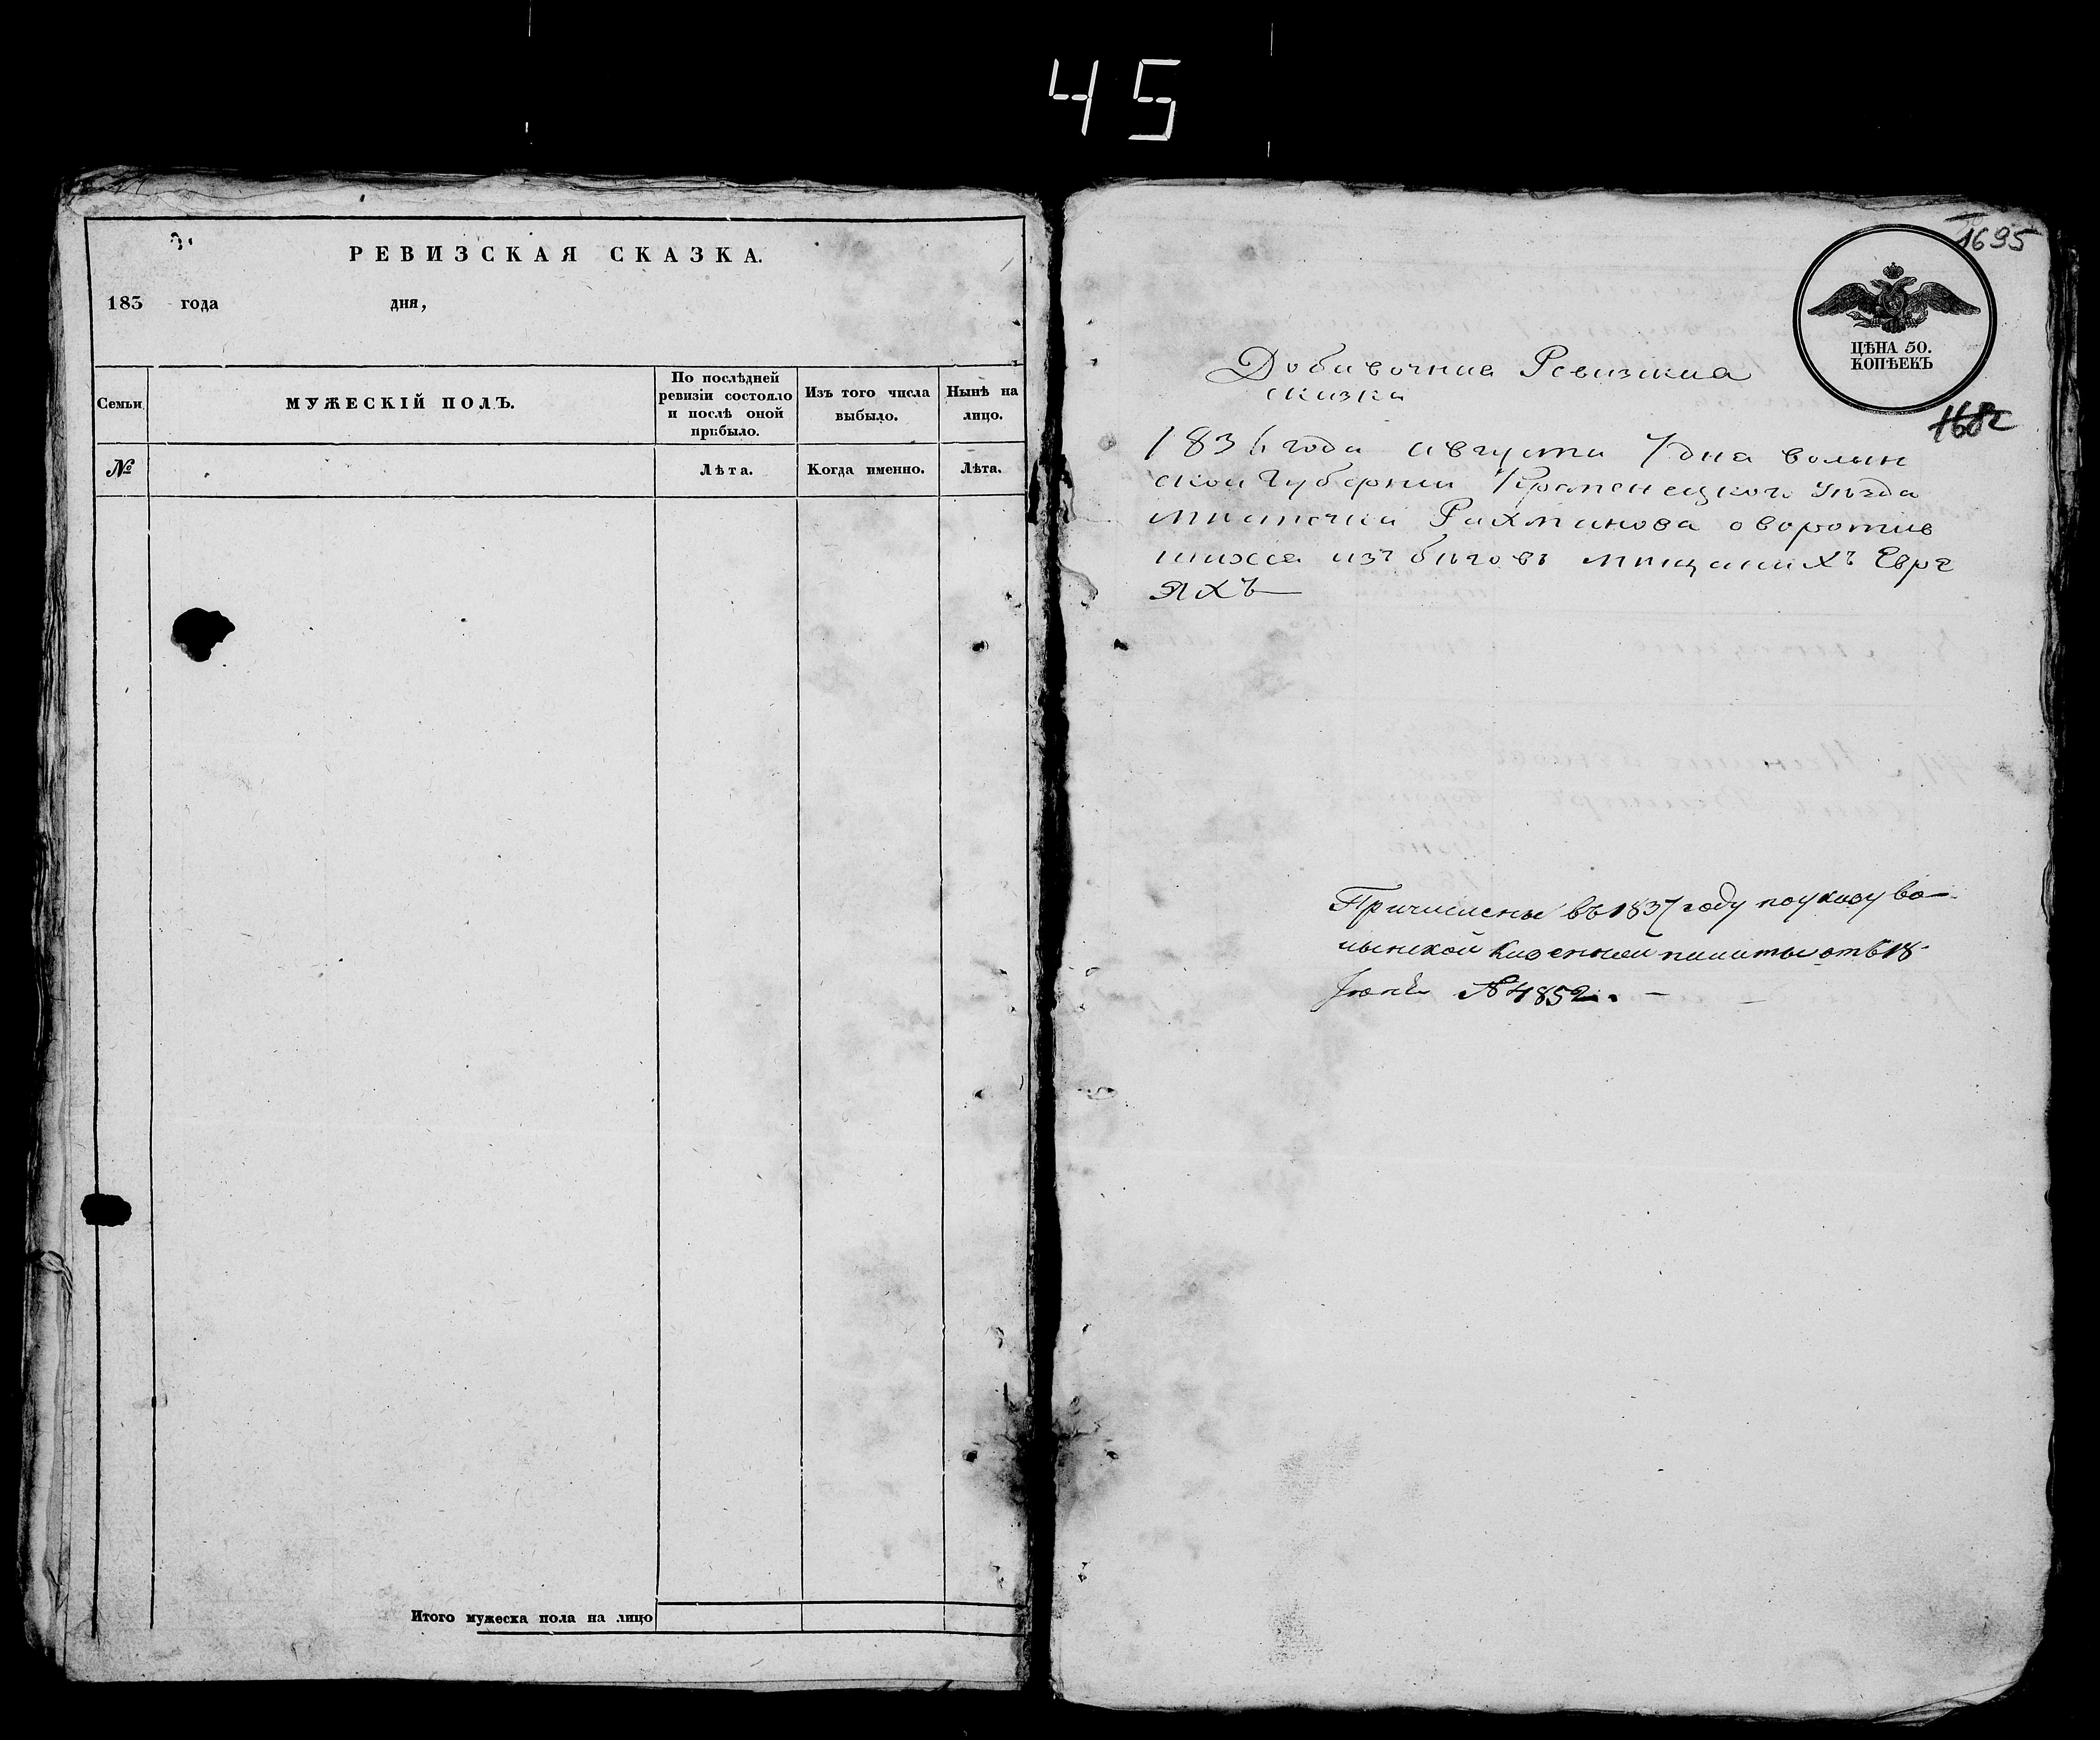 45
РЕВИЗСКАЯ СКАЗКА.
183 года дня,
Семьи
МУЖЕСКІЙ ПОЛЪ.
По послѣдней
ревизіи состояло
и послѣ оной
прибыло.
Изъ того числа
выбыло.
Нынѣ на
лицо.
№
Лѣта.
Когда именно.
Лѣта.
Итого мужеска пола на лицо
1695
ЦѢНА 50.
КОПѢЕКЪ
1682
Добавочная Ревизкиа
сказка
1836 года августа 7 дна волын
ской Губернии Кременецкого уѣзда
мѣстечка Рахманова оворотив
шихса изъ бѣговъ мѣщанихъ Евре
яхъ
Причислены въ 1837 году по указу во-
лынской казенной палаты отъ 18
Іюня № 4852.